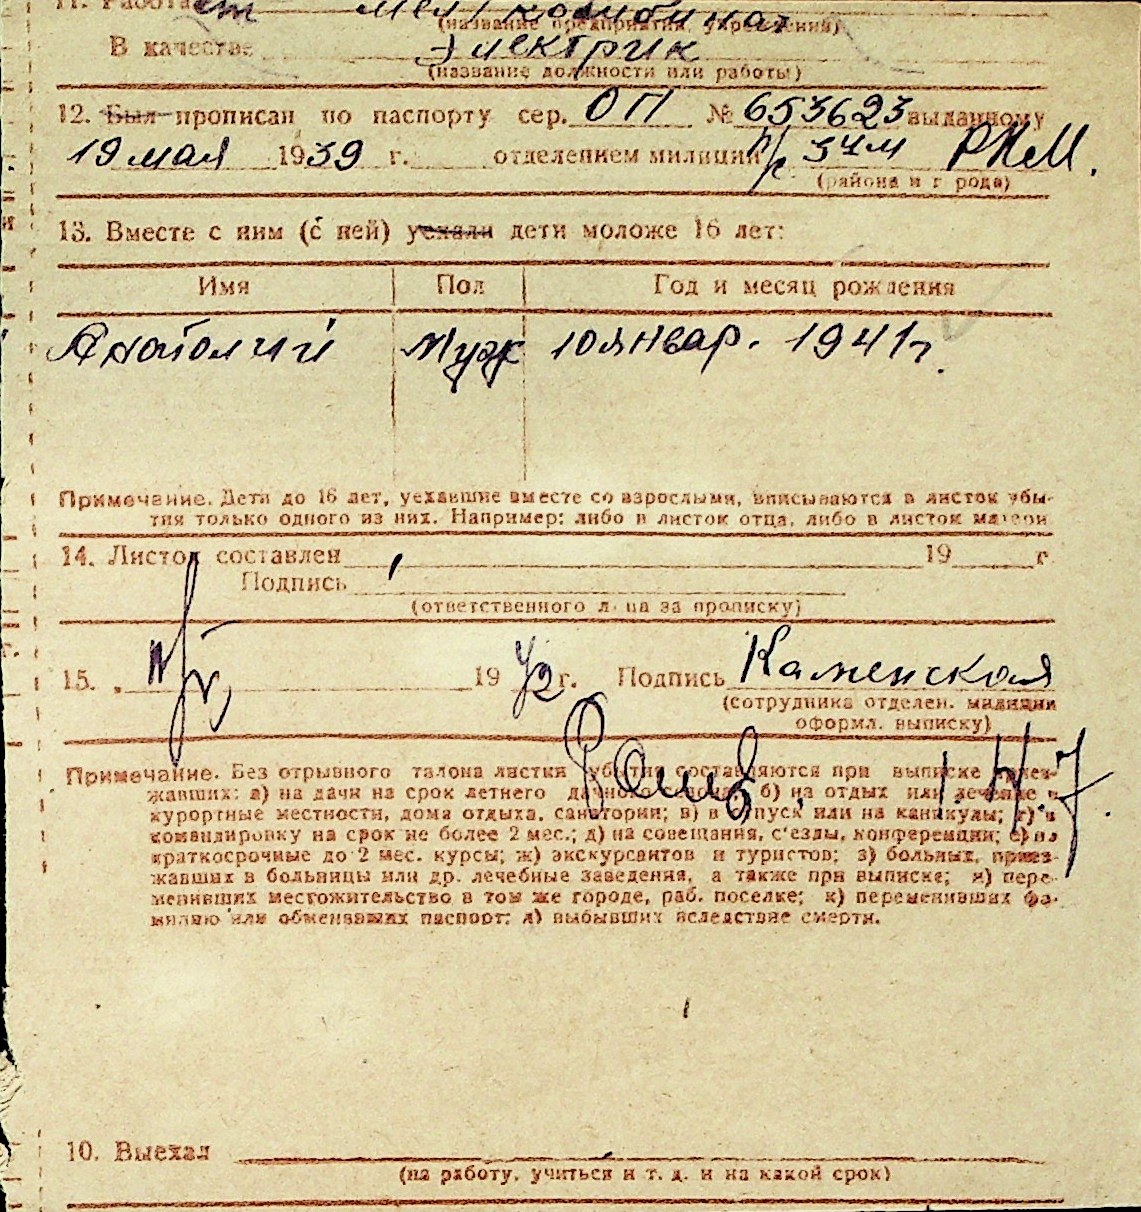 11. Работает Мел/комбинат
(название предприятия, учреждения)
В качестве Электрик
(название должности или работы)
12. Был прописан по паспорту сер. ОП № 653623 выданному
19 мая 1939 г. отделением милиции РКМ.
(района и города)
13. Вместе с ним (с ней) уехали дети моложе 16 лет:
Имя Пол Год и месяц рождения
Анатолий Муж 10 январ. 1941 г.
Примечание. Дети до 16 лет, уехавшие вместе со взрослыми, вписываются в листок убы-
тия только одного из них. Например: либо в листок отца, либо в листок матери
14. Листок составлен 19 г.
Подпись
(ответственного лица за прописку)
15. 1942 г. Подпись Каменская
(сотрудника отделен. милиции
оформл. выписку)
Примечание. Без отрывного талона листки убытия составляются при выписке приез-
жавших: а) на дачи на срок летнего дачного сезона; б) на отдых или лечение в
курортные местности, дома отдыха, санатории; в) в отпуск или на каникулы; г) в
командировку на срок не более 2 мес.; д) на совещания, с'езды, конференции; е) на
краткосрочные до 2 мес. курсы; ж) экскурсантов и туристов; з) больных, приез-
жавших в больницы или др. лечебные заведения, а также при выписке; и) пере-
менивших местожительство в том же городе, раб. поселке; к) переменивших фа-
милию или обменявших паспорт; л) выбывших вследствие смерти.
10. Выехал
(на работу, учиться и т. д. и на какой срок)